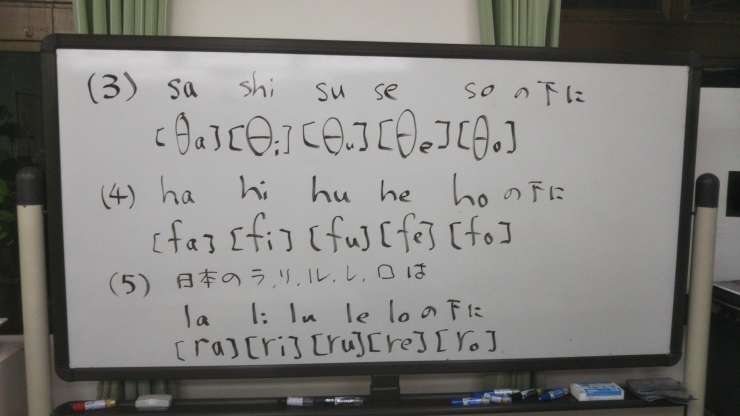 (3) sa shi su se so の下に
[θa] [θi] [θu] [θe] [θo]
(4) ha hi hu he ho の下に
[fa] [fi] [fu] [fe] [fo]
(5) 日本のラ,リ,ル,レ,ロは
la li lu le lo の下に
[ra] [ri] [ru] [re] [ro]